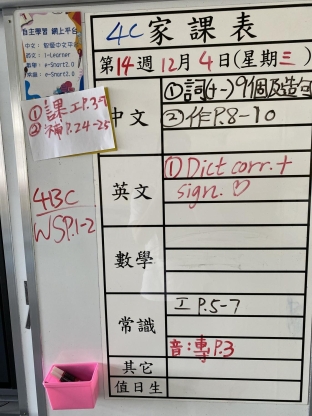 自主學習 網上平台
中文：智愛中文平台
英文：i-Learner
數學：e-Smart2.0
常識：e-Smart2.0
4C 家課表
第14週12月4日(星期三)
① 課工P.3-
② 補P.24-25
4BC
WSP.1-2
中文
①詞(十一)9個及造句
②作P.8-10
英文
① Dict corr. +
sign. ♡
數學
常識
工 P.5-7
音:專P.3
其它
值日生